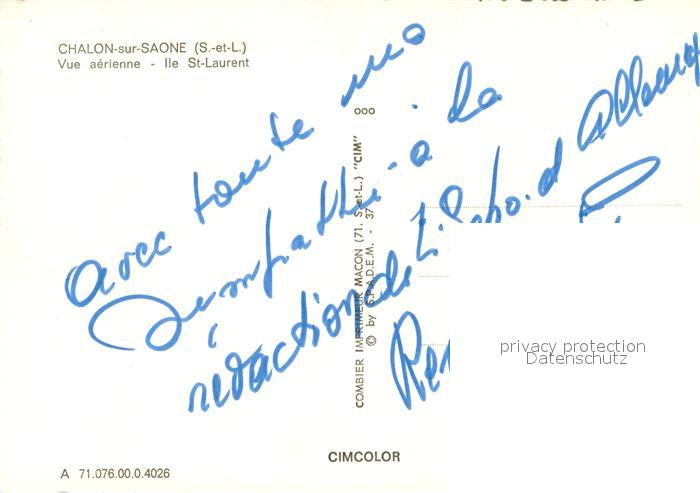 CHALON-sur-SAONE (S.-et-L.)
Vue aérienne - Ile St-Laurent
ooo
avec toute ma
sympathie à la
rédaction de l'Echo d'
COMBIER IMPRIMEUR MACON (71. S.-et-L.) "CIM"
© by S.P.A.D.E.M. - 37
privacy protection
Datenschutz
CIMCOLOR
A 71.076.00.0.4026